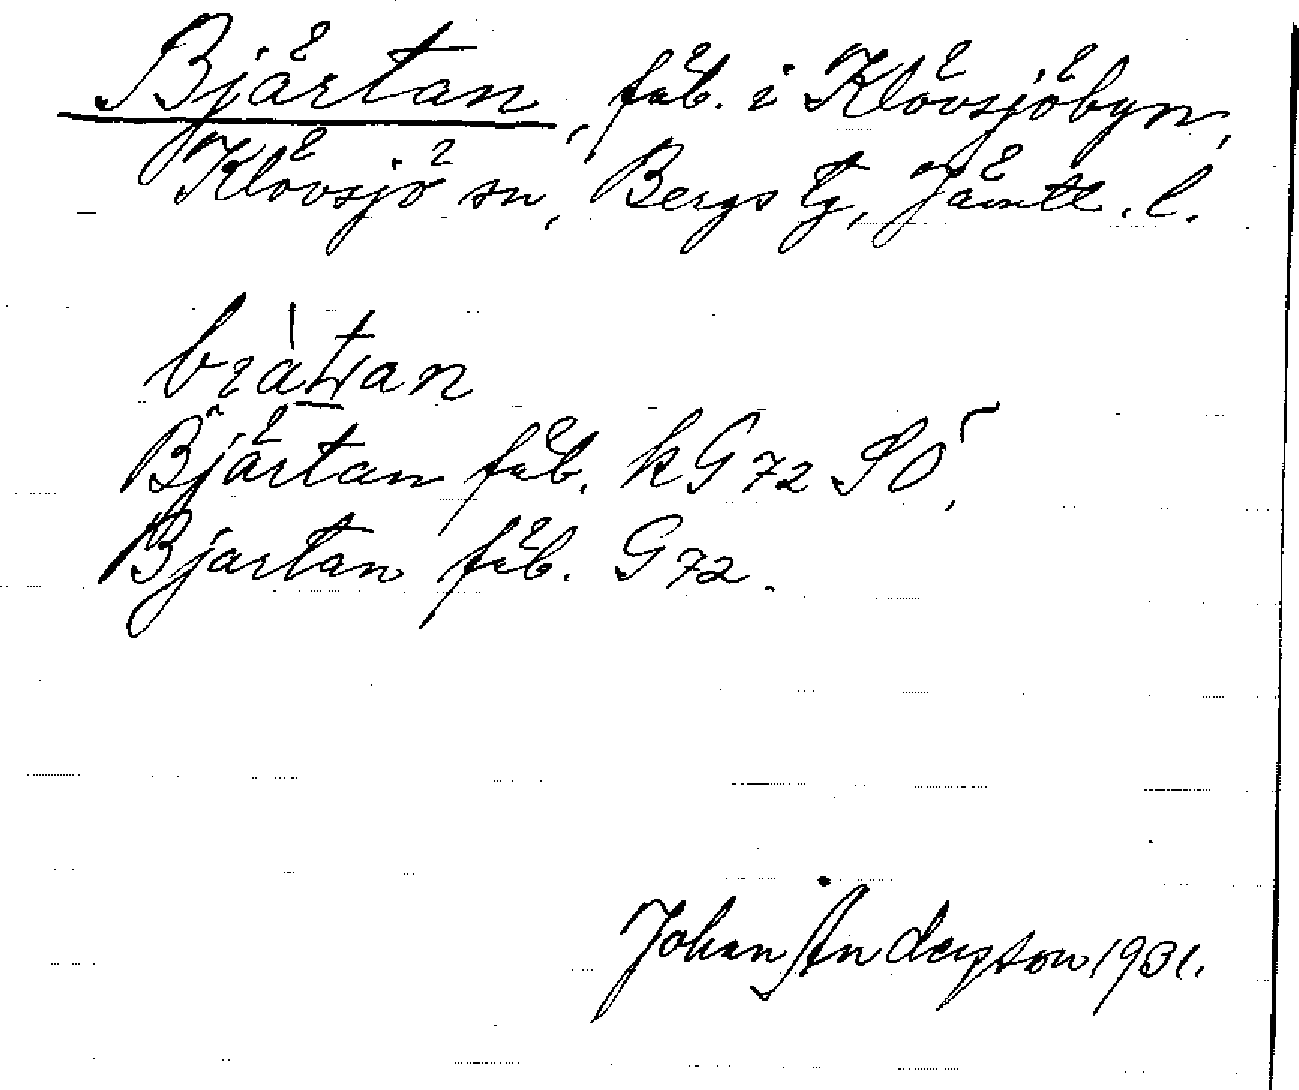 Bjärtan, fäb. i Klövsjöbyn,
Klövsjö sn, Bergs tg, Jämtl. l.
Bjärtan fäb. kG72 SO,
Bjartan fäb. G72.
Johan Anderson 1931.